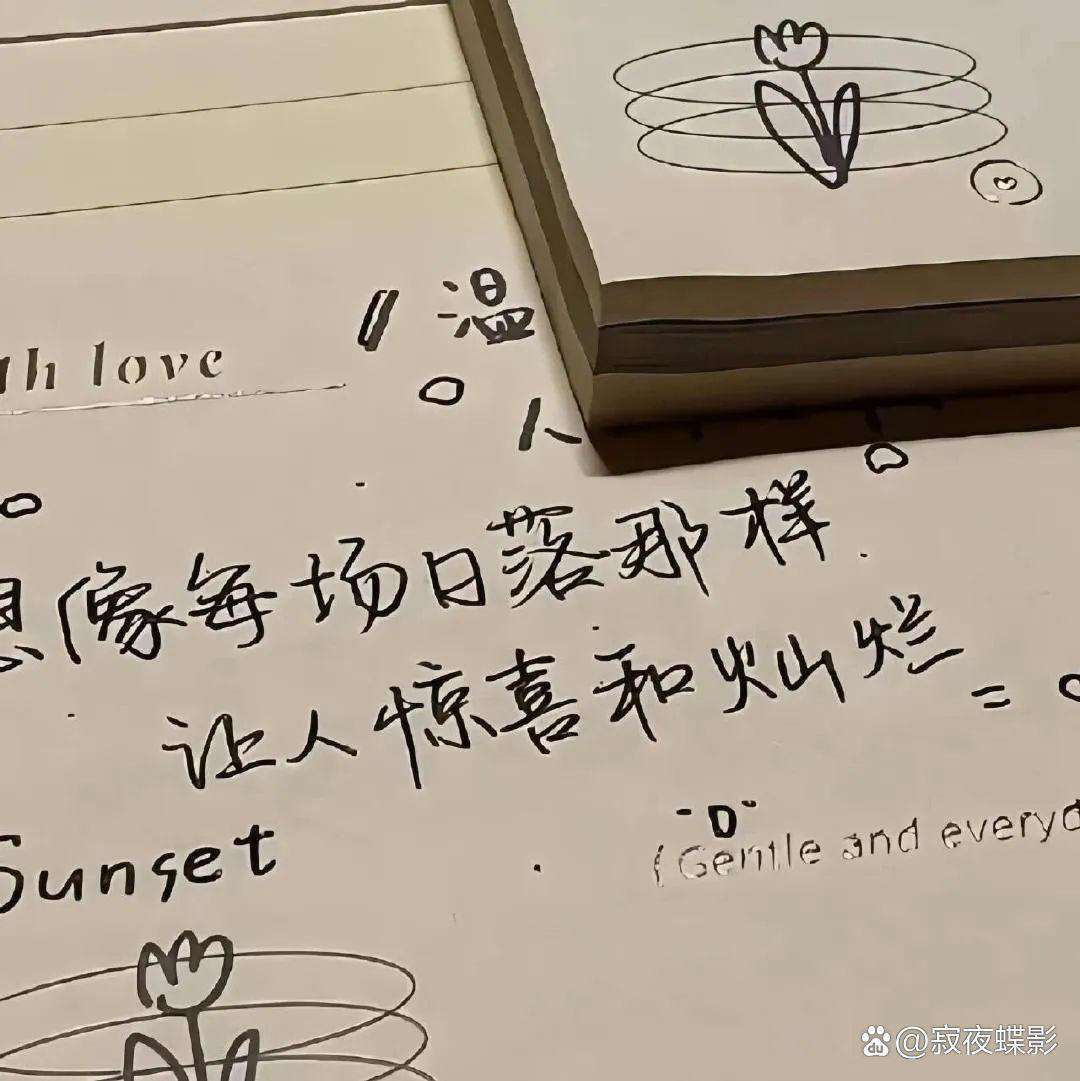 th love
温
人
想像每场日落那样
让人惊喜和灿烂
Sunset
(Gentle and everyd
@寂夜蝶影